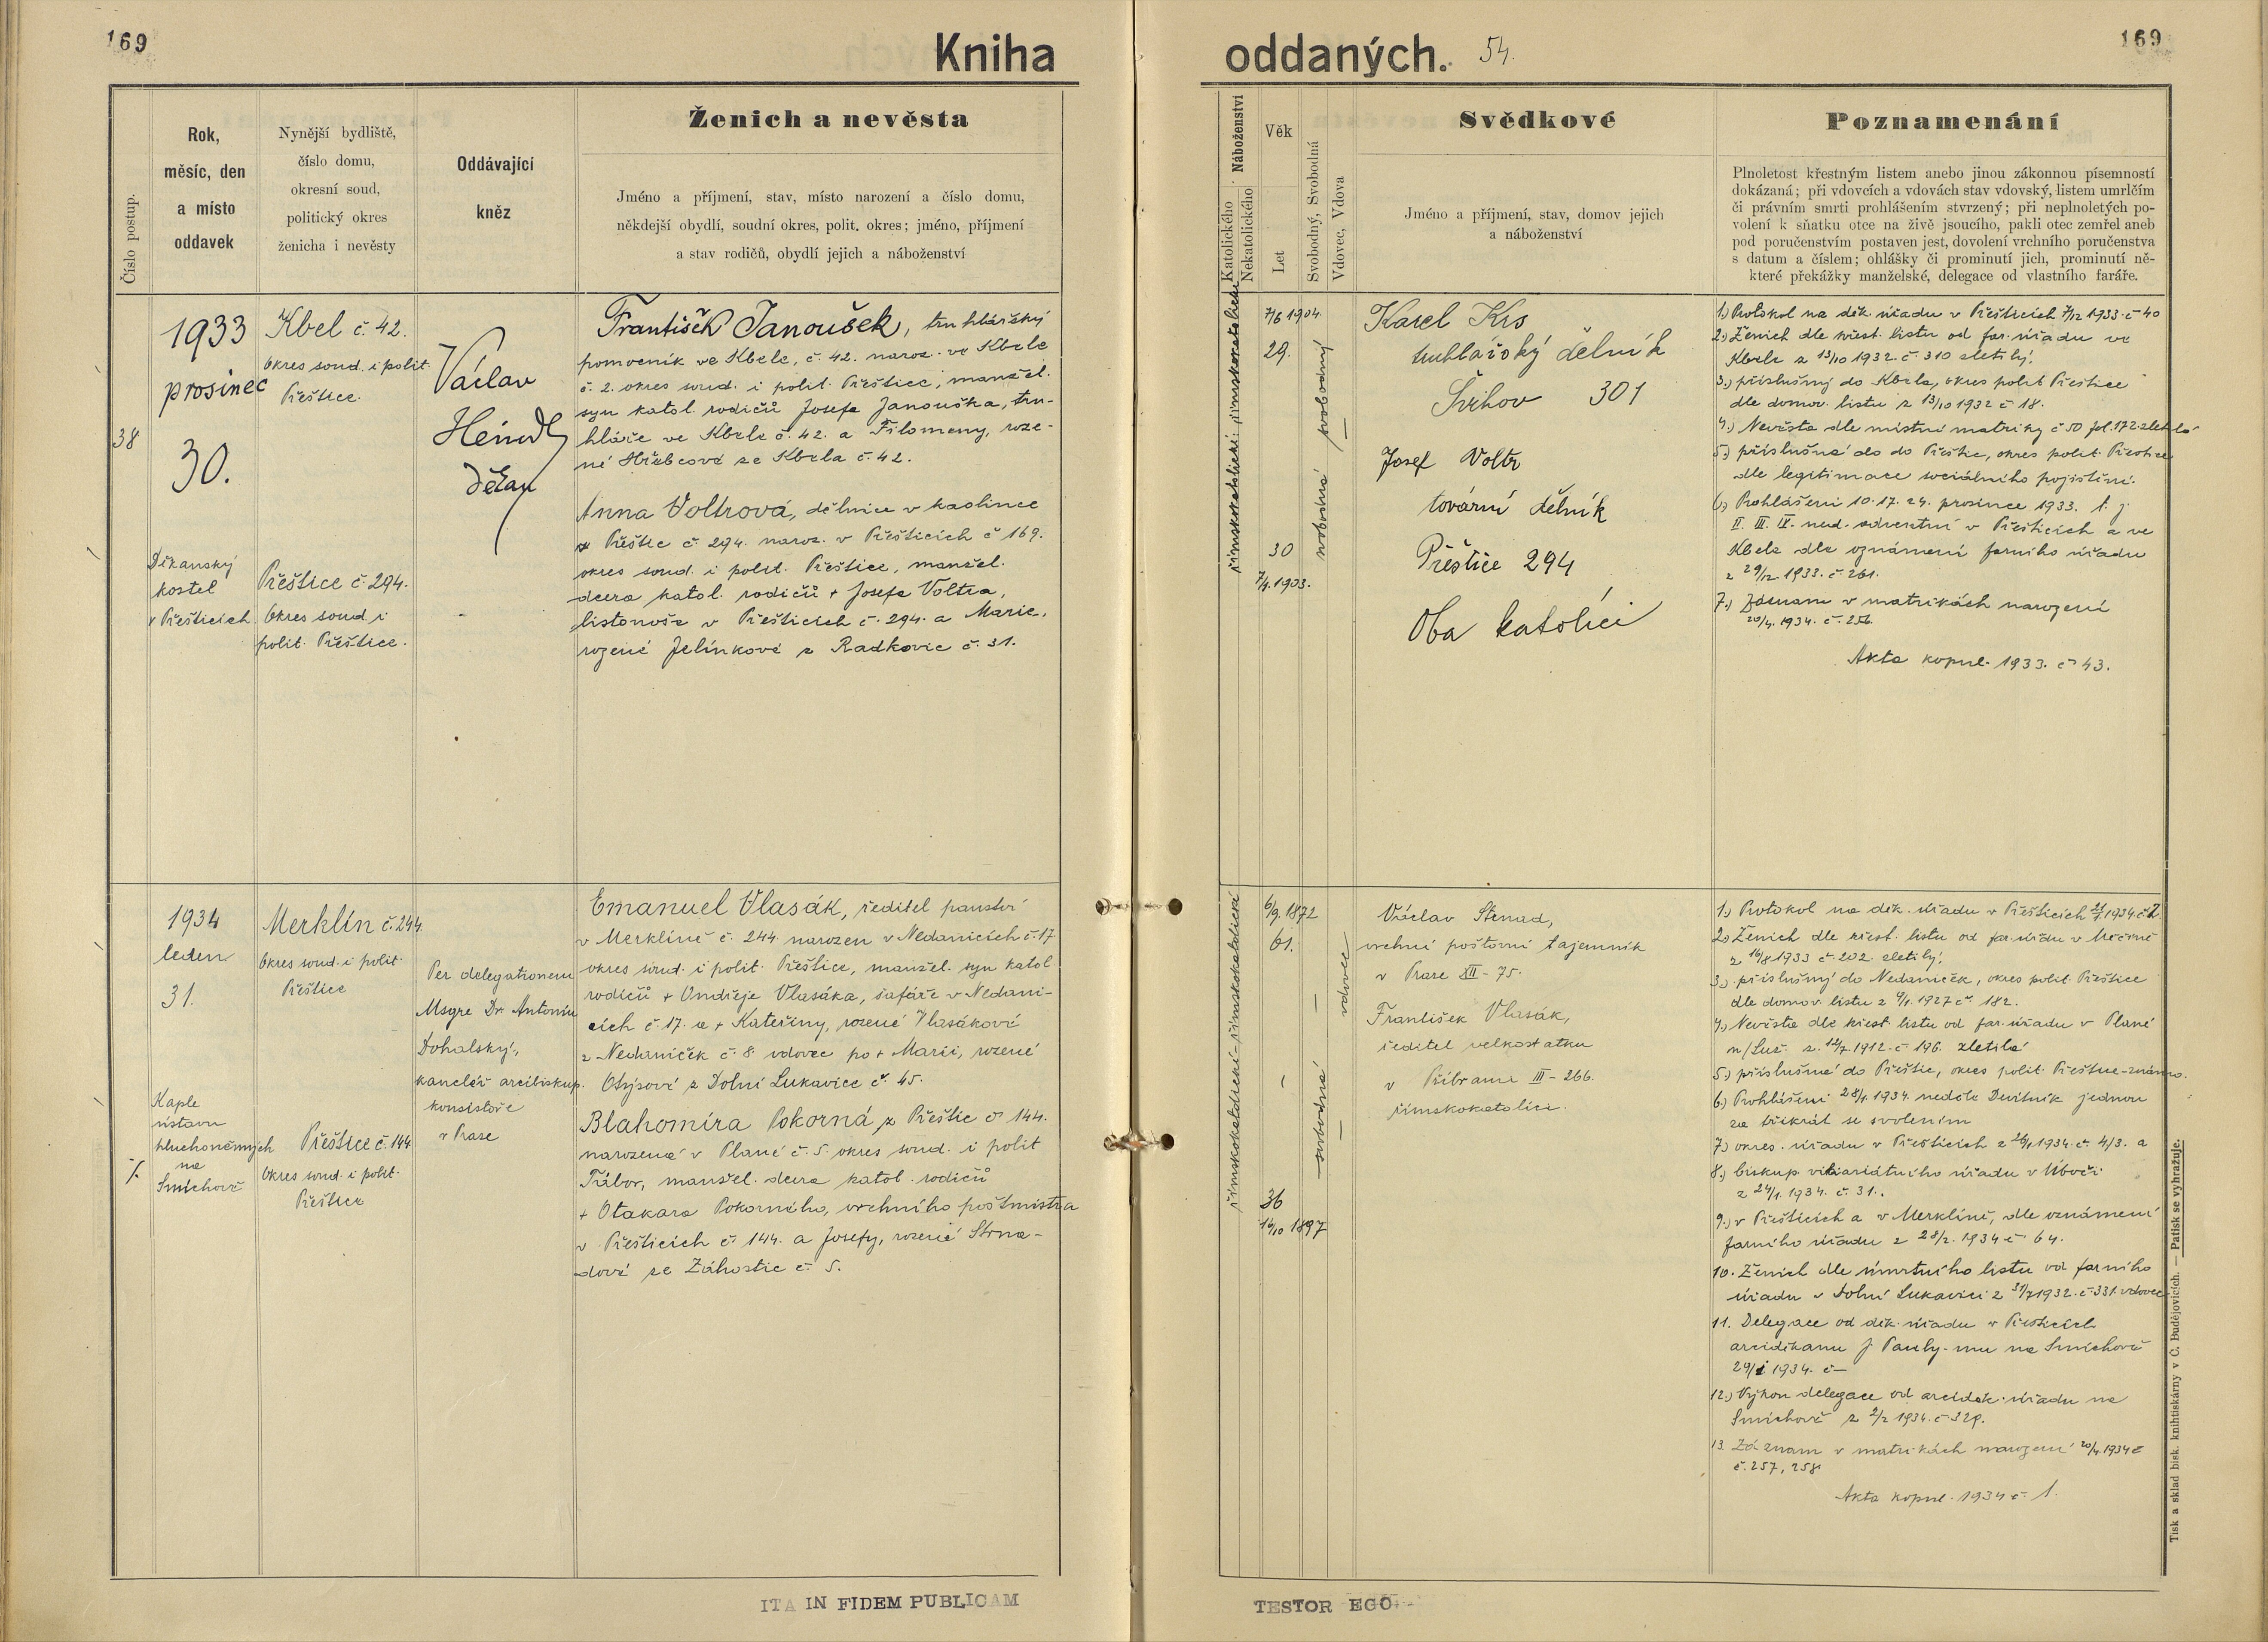 169
Kniha
Číslo postup.
Rok,
měsíc, den
a místo
oddavek
Nynější bydliště,
číslo domu,
okresní soud,
politický okres
ženicha i nevěsty
Oddávající
kněz
Ženich a nevěsta
Jméno a příjmení, stav, místo narození a číslo domu,
někdejší obydlí, soudní okres, polit. okres; jméno, příjmení
a stav rodičů, obydlí jejich a náboženství
38
1933
prosinec
30.
Děkanský
kostel
v Přešticích
Kbel č. 42.
Okres soud. i polit.
Přeštice.
Přeštice č 294.
Okres soud. i
polit. Přeštice.
Václav
Heindl
děkan
František Janoušek, truhlářský
pomocník ve Kbele, č. 42. naroz. ve Kbele
č. 2. okres soud. i polit. Přeštice, manžel.
syn katol. rodičů Josefa Janouška, tru-
hláře ve Kbele č. 42. a Filomeny, roze-
né Hřebcové ze Kbela č. 42.
Anna Voltrová, dělnice v kaolince
z Přeštic č. 294. naroz. v Přešticích č 169.
okres soud. i polit. Přeštice, manžel.
dcera katol. rodičů + Josefa Voltra,
listonoše v Přešticích č. 294. a Marie,
rozené Jelínkové z Radkovic č. 31.
1934
leden
31.
Kaple
ústavu
hluchoněmých
na
Smíchově
Merklín č. 244.
Okres soud. i polit.
Přeštice
Přeštice č. 144
Okres soud. i polit.
Přeštice
Per delegationem
Msgre Dr. Antonín
Dohalský,
kancléř arcibiskup.
konsistoře
v Praze
Emanuel Vlasák, ředitel panství
v Merklíně č. 244 narozen v Nedanicích č. 17.
okres soud. i polit. Přeštice, manžel. syn katol
rodičů + Ondřeje Vlasáka, šafáře v Nedani-
cích č. 17. a + Kateřiny, rozené Vlasákové
z Nedaniček č. 8. vdovec po + Marii, rozené
Otýsové z Dolní Lukavice č. 45.
Blahomíra Pokorná z Přeštic č 144.
narozená v Plané č. 5. okres soud. i polit
Tábor, manžel. dcera katol. rodičů
+ Otakara Pokorného, vrchního poštmistra
v Přešticích č. 144. a Josefy, rozené Strna-
dové ze Záhostic č. 5.
ITA IN FIDEM PUBLICAM
oddaných. 54.
169
Náboženství
Katolického
Nekatolického
Věk
Let
Svobodný, Svobodná
Vdovec, Vdova
Svědkové
Jméno a příjmení, stav, domov jejich
a náboženství
Poznamenání
Plnoletost křestným listem anebo jinou zákonnou písemností
dokázaná; při vdovcích a vdovách stav vdovský, listem umrlčím
či právním smrti prohlášením stvrzený; při neplnoletých po-
volení k sňatku otce na živě jsoucího, pakli otec zemřel aneb
pod poručenstvím postaven jest, dovolení vrchního poručenstva
s datum a číslem; ohlášky či prominutí jich, prominutí ně-
které překážky manželské, delegace od vlastního faráře.
římskokatolické: římskokatolické
7/6 1904.
29.
30
7/4. 1903.
svobodný
svobodná
Karel Krs
truhlářský dělník
Švihov 301
Josef Voltr
tovární dělník
Přeštice 294
Oba katolíci
1.) Protokol na děk. úřadu v Přešticích 7/12 1933. č 40
2.) Ženich dle křest. listu od far. úřadu ve
Kbele z 13/10 1932. č. 310 zletilý.
3.) příslušný do Kbela, okres polit Přeštice
dle domov. listu z 13/10 1932 č 18.
4.) Nevěsta dle místní matriky č 50 fol. 172 zletilá
5.) příslušná do do Přeštic, okres polit. Přeštice
dle legitimace sociálního pojištění.
6.) Prohlášeni 10. 17. 24. prosince 1933. t. j.
II. III. IV. ned. adventní v Přešticích a ve
Kbele dle oznámení farního úřadu
z 29/12. 1933. č. 261.
7.) Záznam v matrikách narození
20/4. 1934. č. 256.
Akta kopul. 1933. č 43.
římskokatolické - římskokatolické
6/9. 1872
61.
36
16/10 1897
vdovec
svobodná
Václav Strnad,
vrchní poštovní tajemník
v Praze XII - 75.
František Vlasák,
ředitel velkostatku
v Příbrami III - 266.
římskokatolíci.
1.) Protokol na děk. úřadu v Přešticích 21/1 1934. č 2.
2.) Ženich dle křest. listu od far. úřadu v Měčíně
z 16/8 1933 č. 202. zletilý.
3.) příslušný do Nedaniček, okres polit. Přeštice
dle domov. listu z 4/1. 1927 č. 182.
4.) Nevěsta dle křest. listu od far. úřadu v Plané
n/Luž. z. 14/7. 1912. č. 196. zletilá
5.) příslušná do Přeštic, okres polit. Přeštice - známo.
6.) Prohlášeni 28/1. 1934. neděle Devítník jednou
za třikrát se svolením
7.) okres. úřadu v Přešticích z 26/1 1934. č. 4/3. a
8.) biskup. vikariátního úřadu v Úboči
z 24/1. 1934. č. 31.
9.) v Přešticích a v Merklíně, dle oznámení
farního úřadu z 28/2. 1934 č. 64.
10. Ženich dle úmrtního listu od farního
úřadu v Dolní Lukavici z 31/7 1932. č. 331. vdovec
11. Delegace od děk. úřadu v Přešticích
arciděkanu J. Pauly-mu na Smíchově
29/1 1934. č —
12.) Výkon delegace od arciděk. úřadu na
Smíchově z 2/2 1934. č 329.
13. Záznam v matrikách narození 20/4. 1934 č
č. 257, 258
Akta kopul. 1934 č. 1.
TESTOR EGO
Tisk a sklad bisk. knihtiskárny v Č. Budějovicích. — Patisk se vyhražuje.